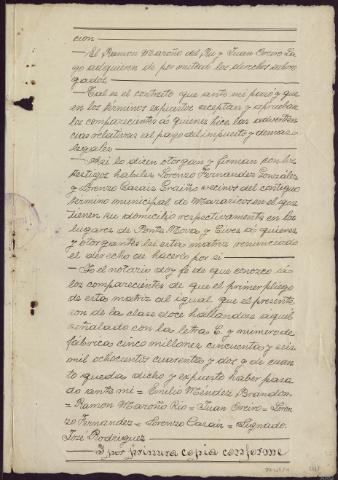 cion
— El Ramon Maroño del Rio y Juan Corvo La-
go adquieren de por mitad los derechos subro-
gados
— Tal es el contrato que ante mi pasó y que
en los términos expuestos aceptan y aprueban
los comparecientes á quienes hice las adverten-
cias relativas al pago del impuesto y demas
legales
— Asi lo dicen otorgan y firman con los
testigos habiles Lorenzo Fernandez Gonzalez
y Lorenzo Casais vecinos del contiguo
termino municipal de Mazaricos en el que
tienen su domicilio respectivamente en los
lugares de Ponte Nova y á quienes
y otorgantes lei esta matriz renunciado
el derecho de hacerlo por si
— Yo el notario doy fe de que conozco á
los comparecientes de que el primer pliego
de esta matriz al igual que el presente
son de la clase once hallandose aquel
señalado con la letra y numero de
fábrica cinco millones cincuenta y seis
mil ochocientos cuarenta y dos y de cuan-
to queda dicho y expuesto haber pasa-
do ante mi = Emilio Méndez Brandon
= Ramon Maroño Rio = Juan Corvo = Loren-
zo Fernandez = Lorenzo Casais = Signado:
José Rodriguez
Y por primera copia conforme